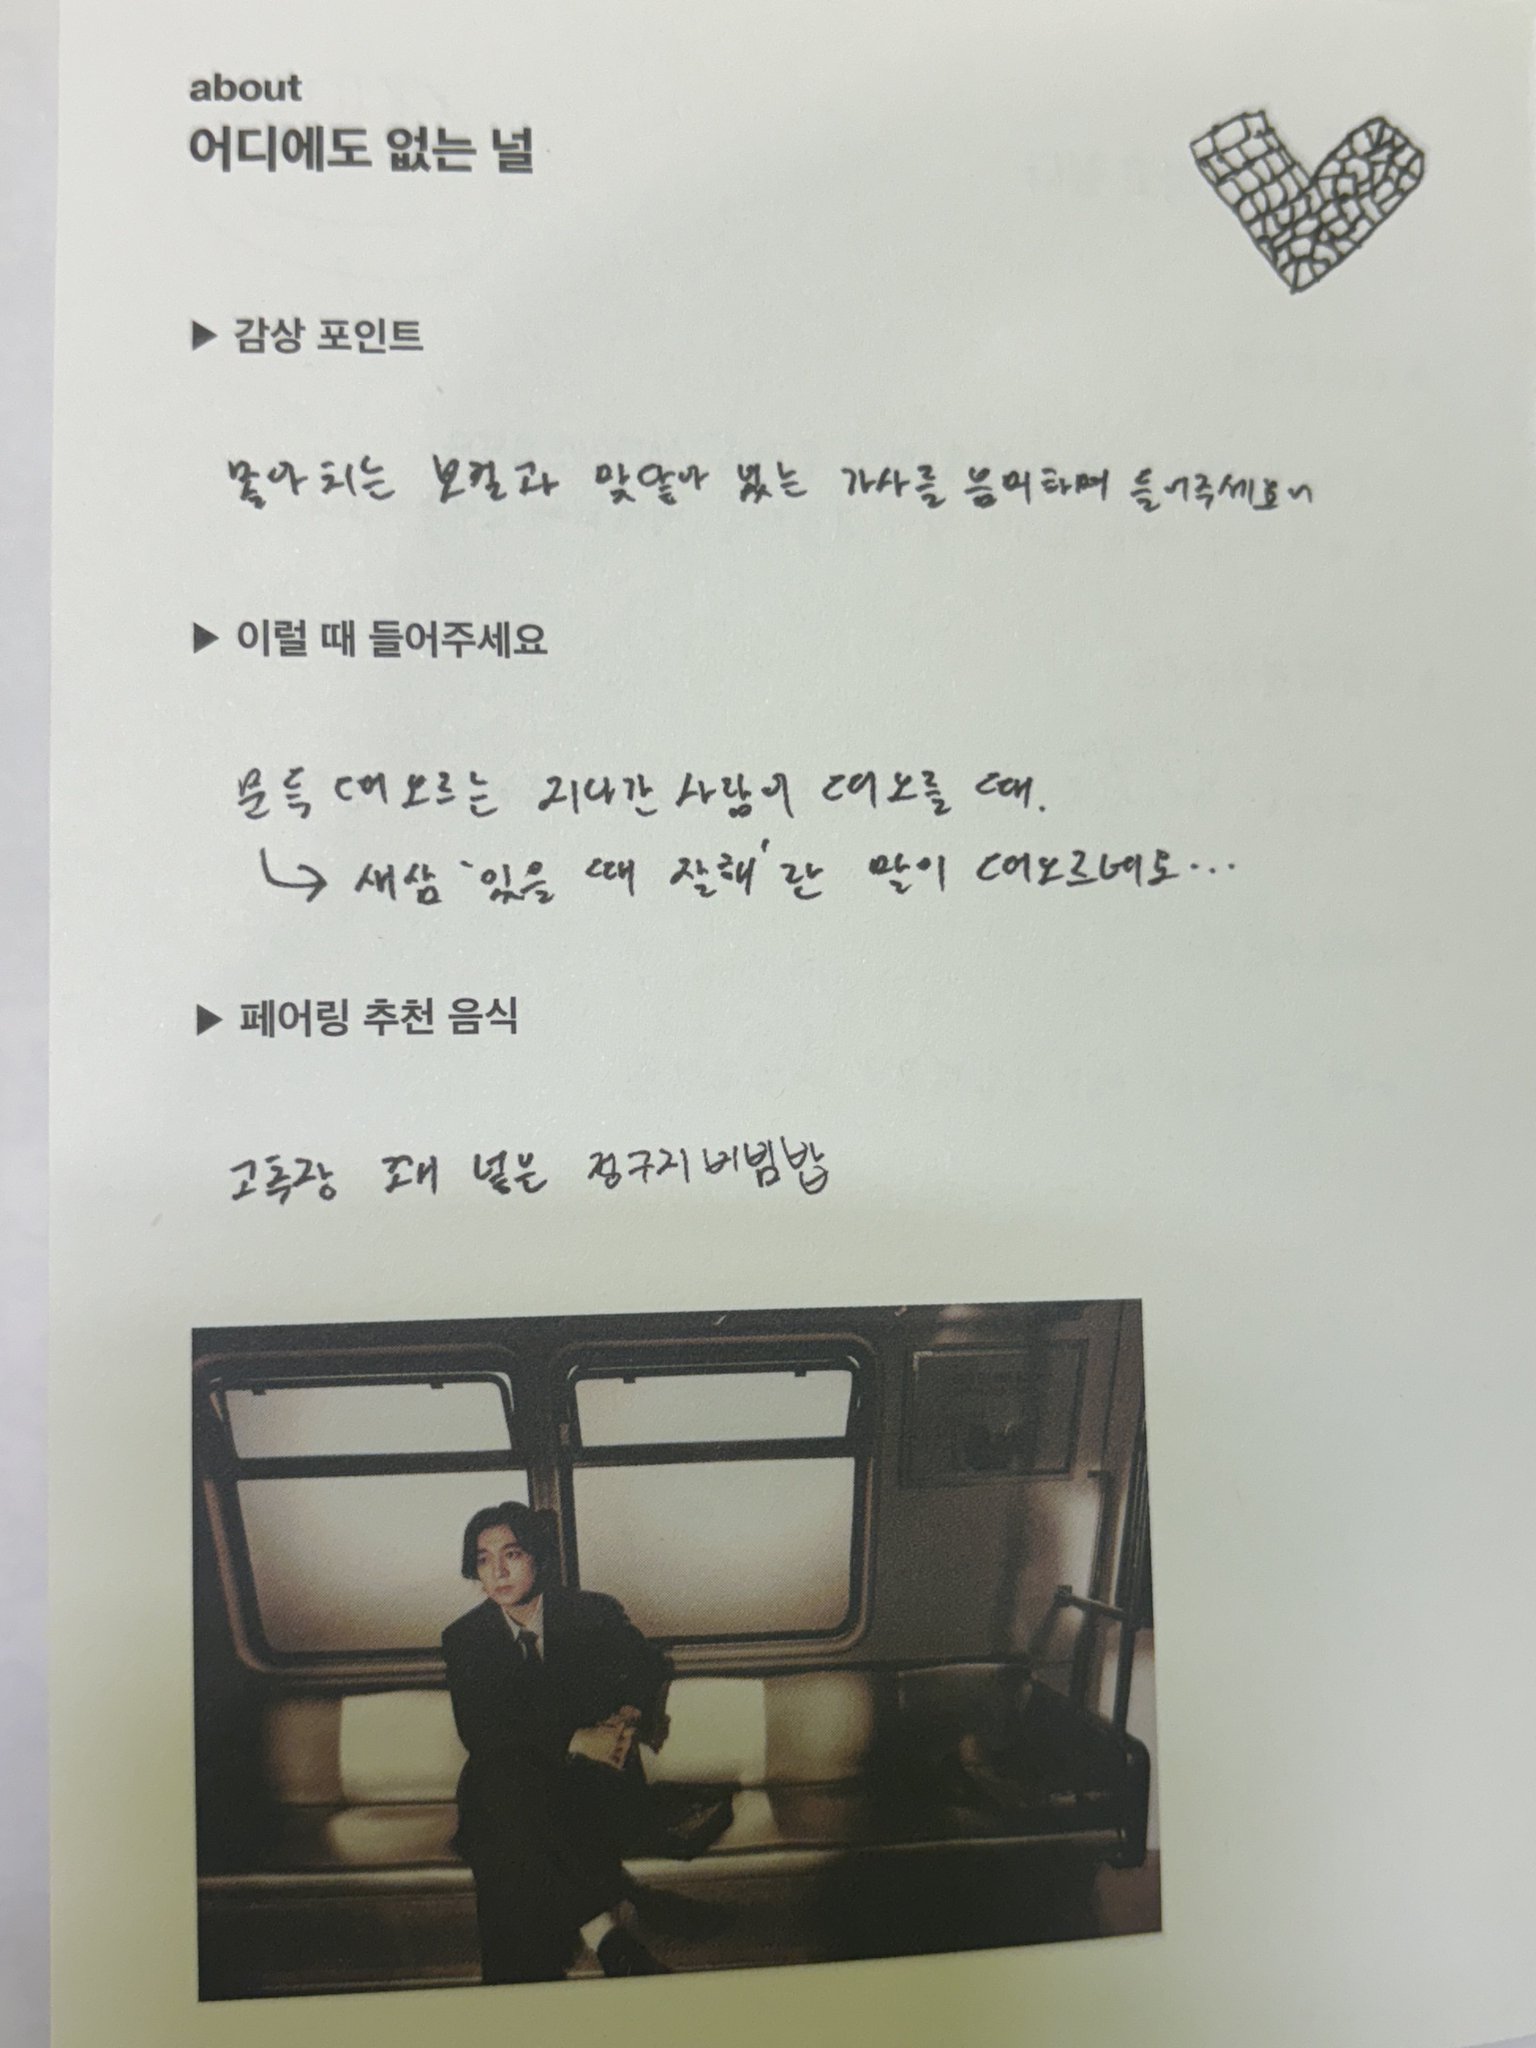 about
어디에도 없는 널
▶ 감상 포인트
몰아치는 보컬과 맞닿아 있는 가사를 음미하며 들어주세요
▶ 이럴 때 들어주세요
문득 떠오르는 지나간 사람이 떠오를 때.
↳ 새삼 '있을 때 잘해'란 말이 떠오르네도...
▶ 페어링 추천 음식
고추장 조대 넣은 정구지비빔밥